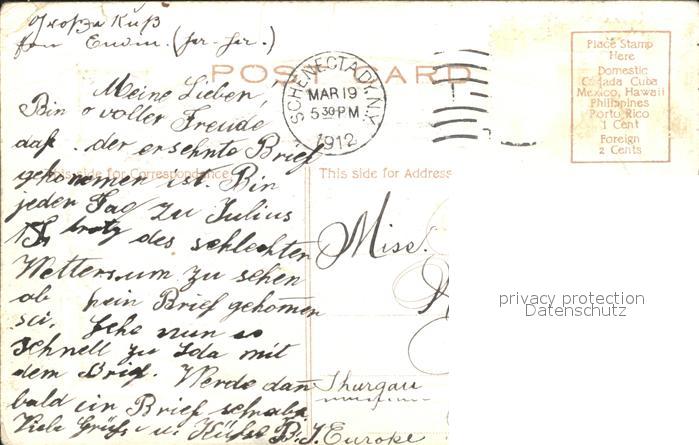 Große Kuß
POST CARD
SCHENECTADY, N.Y.
MAR 19
5 30 PM
1912
Place Stamp
Here
Domestic
Canada Cuba
Mexico, Hawaii
Philippines
Porto Rico
1 Cent
Foreign
2 Cents
This side for Correspondence
This side for Address
Meine Lieben,
Bin voller Freude
daß der ersehnte Brief
gekommen ist. Bin
jeden Tag zu Julius
trotz des schlechten
Wetters um zu sehen
ob kein Brief gekommen
sei. Gehe nun so
schnell zu Ida mit
dem Brief. Werde dan
bald ein Brief schreiben
Viele Grüße u. Küße B. J.
Miss.
Thurgau
Europe
privacy protection
Datenschutz